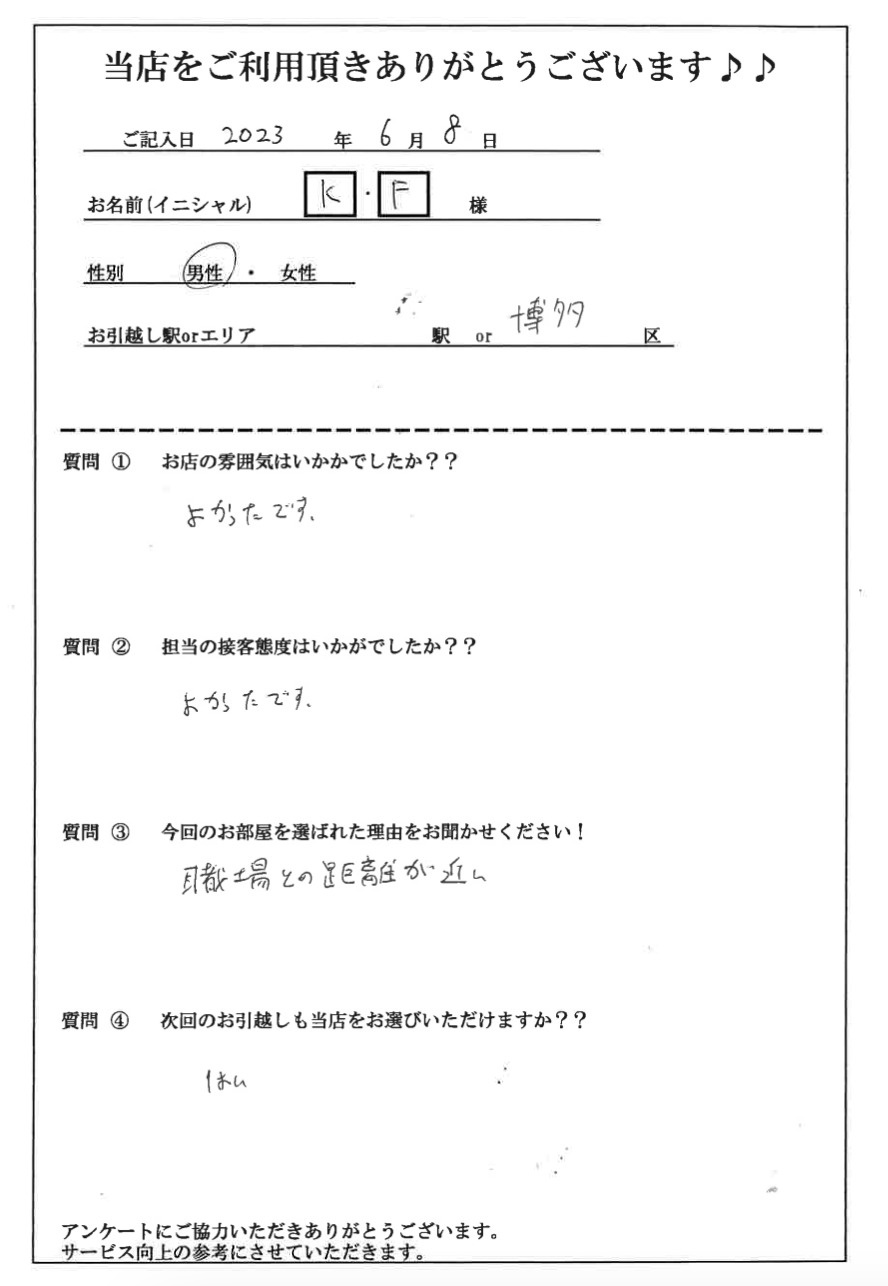 当店をご利用頂きありがとうございます♪♪
ご記入日 2023 年 6 月 8 日
お名前(イニシャル) K ・ F 様
性別 男性 ・ 女性
お引越し駅orエリア 駅 or 博多 区
質問 ① お店の雰囲気はいかかでしたか??
よかったです、
質問 ② 担当の接客態度はいかがでしたか??
よかったです、
質問 ③ 今回のお部屋を選ばれた理由をお聞かせください!
職場との距離が近い
質問 ④ 次回のお引越しも当店をお選びいただけますか??
はい
アンケートにご協力いただきありがとうございます。
サービス向上の参考にさせていただきます。